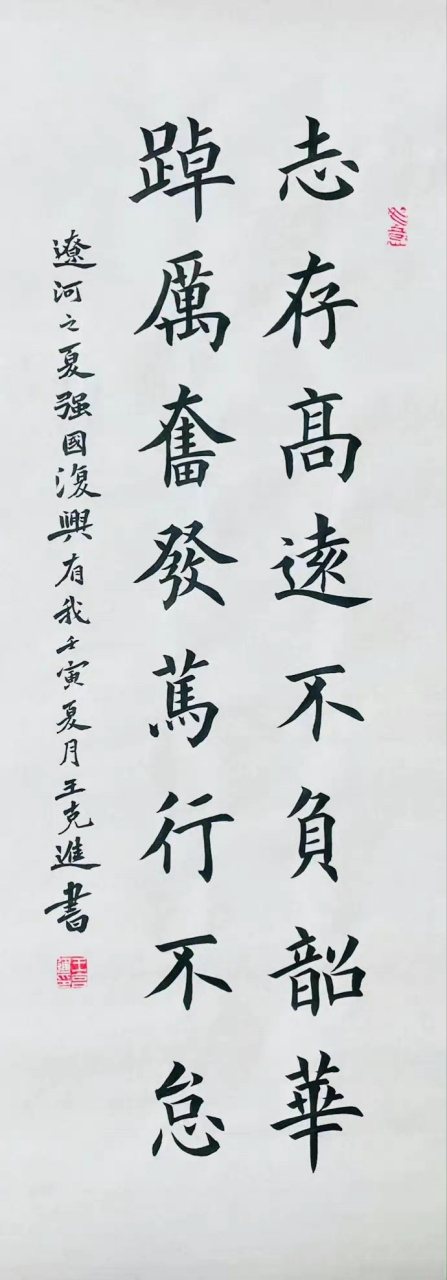 志存高遠不負韶華
踔厲奮發篤行不怠
遼河之夏强國復興有我壬寅夏月王克進書